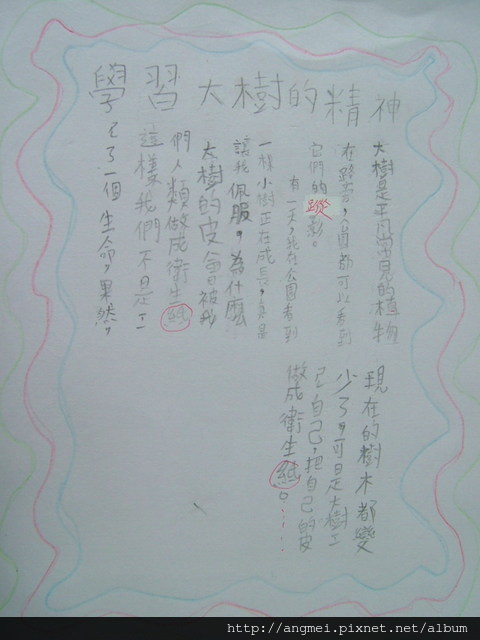 學習大樹的精神
大樹是平常常見的植物
在路旁,公園都可以看到
它們的蹤影。
有一天,我在公園看到
一棵小樹正在成長,真是
讓我佩服,為什麼
大樹的皮會被我
們人類做成衛生紙
這樣我們不是
了一個生命,果然,
現在的樹木都變
少了,可是大樹
自己,把自己的皮
做成衛生紙。……
http://angmei.pixnet.net/album